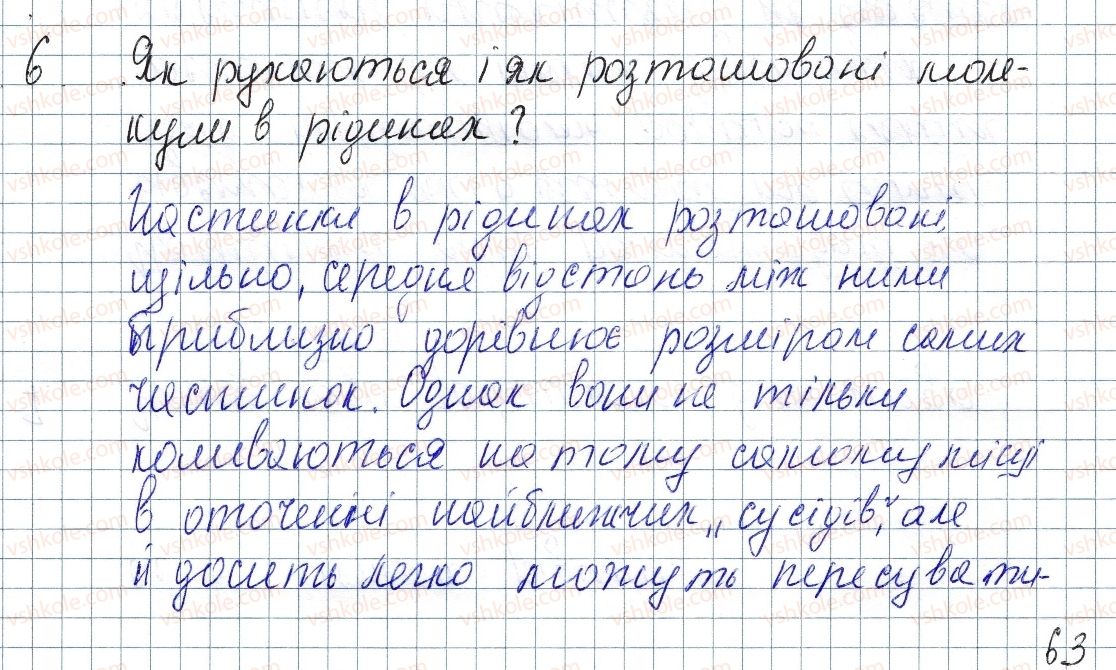 6 Як рухаються і як розташовані моле-
кули в рідинах?
Частинки в рідинах розташовані
щільно, середня відстань між ними
приблизно дорівнює розмірам самих
частинок. Однак вони не тільки
коливаються на тому самому місці
в оточенні найближчих „сусідів", але
й досить легко можуть пересувати-
63